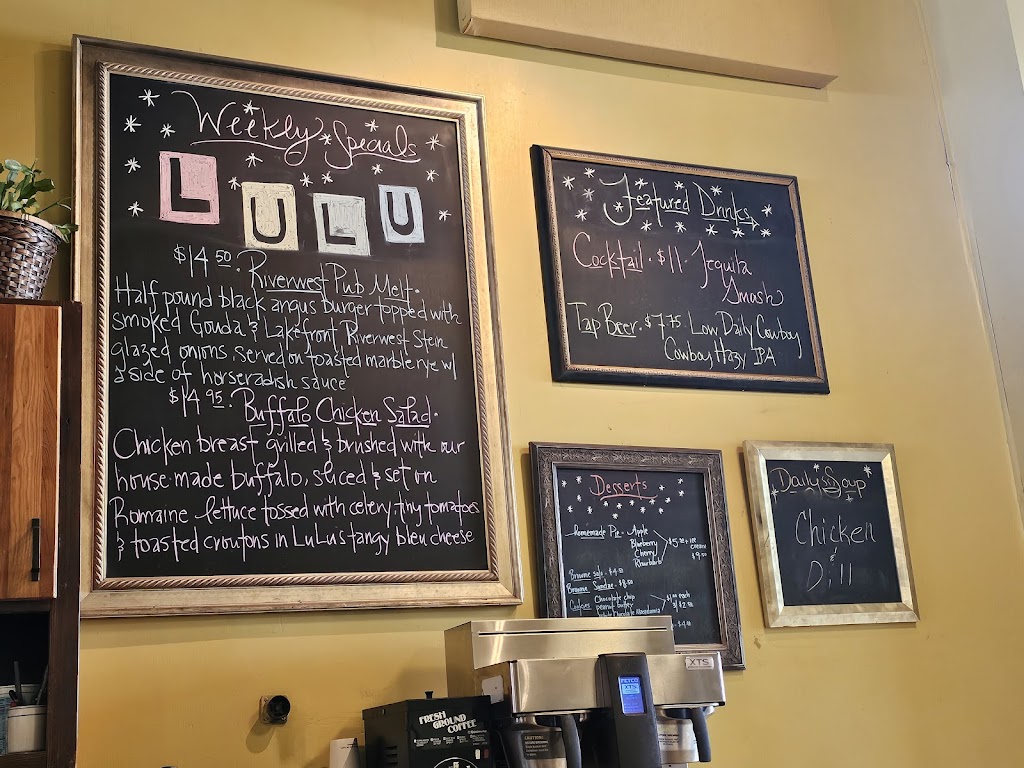 Weekly Specials
LULU
$14.50. Riverwest Pub Melt.
Half pound black angus burger topped with
smoked Gouda & Lakefront Riverwest Stein
glazed onions. served on toasted marble rye w/
a side of horseradish sauce
$14.95. Buffalo Chicken Salad.
Chicken breast grilled & brushed with our
house made buffalo, sliced & set on
Romaine lettuce tossed with celery, tiny tomatoes
& toasted croutons in LuLu's tangy bleu cheese
Featured Drinks
Cocktail. $11. Tequila
Smash
Tap Beer. $7.75 Low Daily Cowboy
Cowboy Hazy IPA
Desserts
Homemade Pie - Apple
Blueberry
Cherry
Rhubarb
Brownie
Brownie Sundae
Cookies Chocolate chip
peanut butter
Daily Soup
Chicken
&
Dill
XTS
XTS
FRESH
GROUND
COFFEE
CAUTION